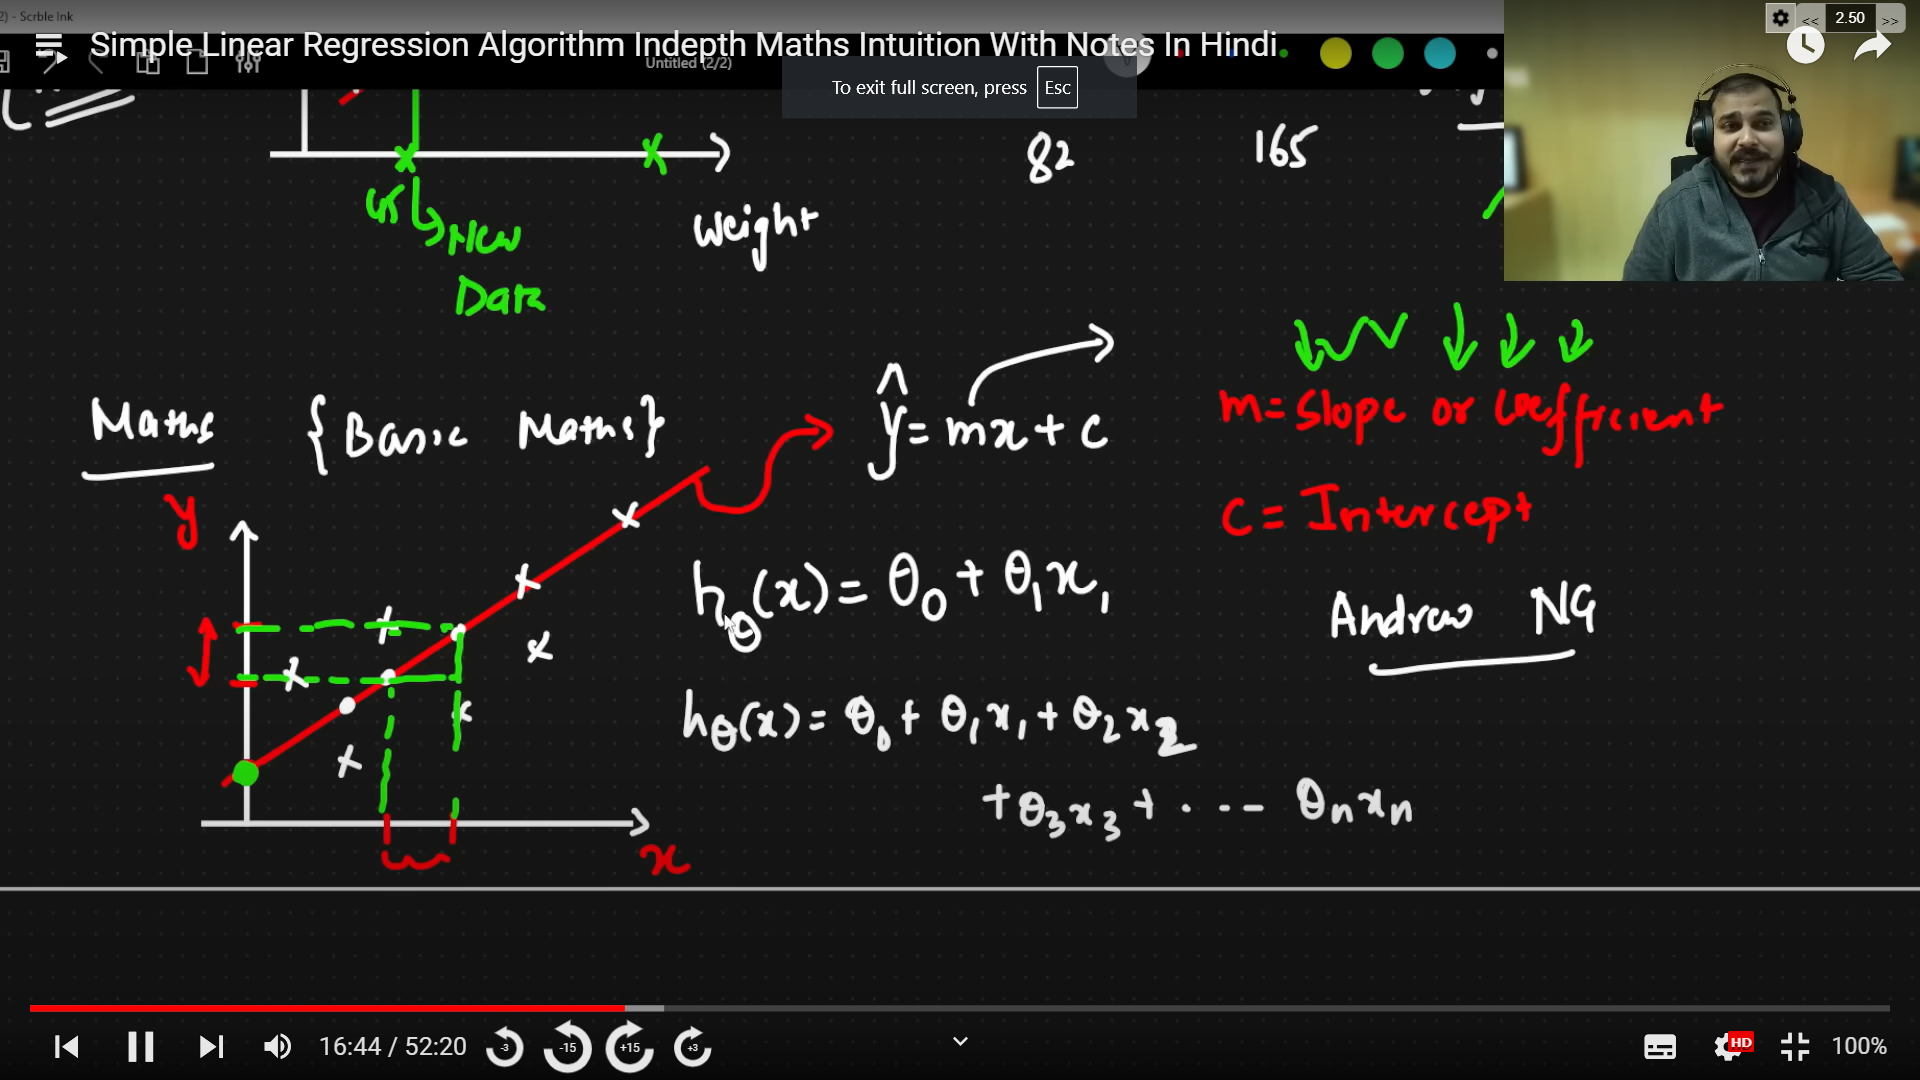 2) - Scrble Ink
2.50
Simple Linear Regression Algorithm Indepth Maths Intuition With Notes In Hindi
Untitled (2/2)
To exit full screen, press Esc
82 165
New
Data
Weight
Maths {Basic Maths}
ŷ = mx + c
m = Slope or Coefficient
c = Intercept
y
hθ(x) = θ0 + θ1x1
Andrew NG
hθ(x) = θ0 + θ1x1 + θ2x2
+ θ3x3 + . . - - θnxn
x
16:44 / 52:20 -3 -15 +15 +3 HD 100%